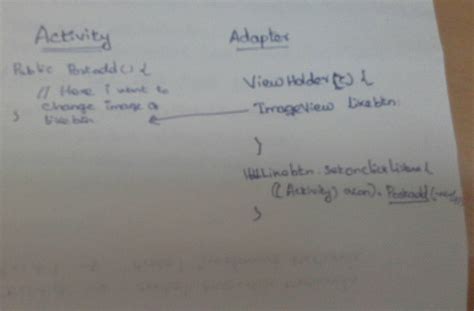 Activity
Public Postadd() {
// Here i want to
change image of
likebtn
}
Adapter
ViewHolder() {
ImageView likebtn
}
Likebtn.setonclicklistener(
((Activity) acon).Postadd(
}